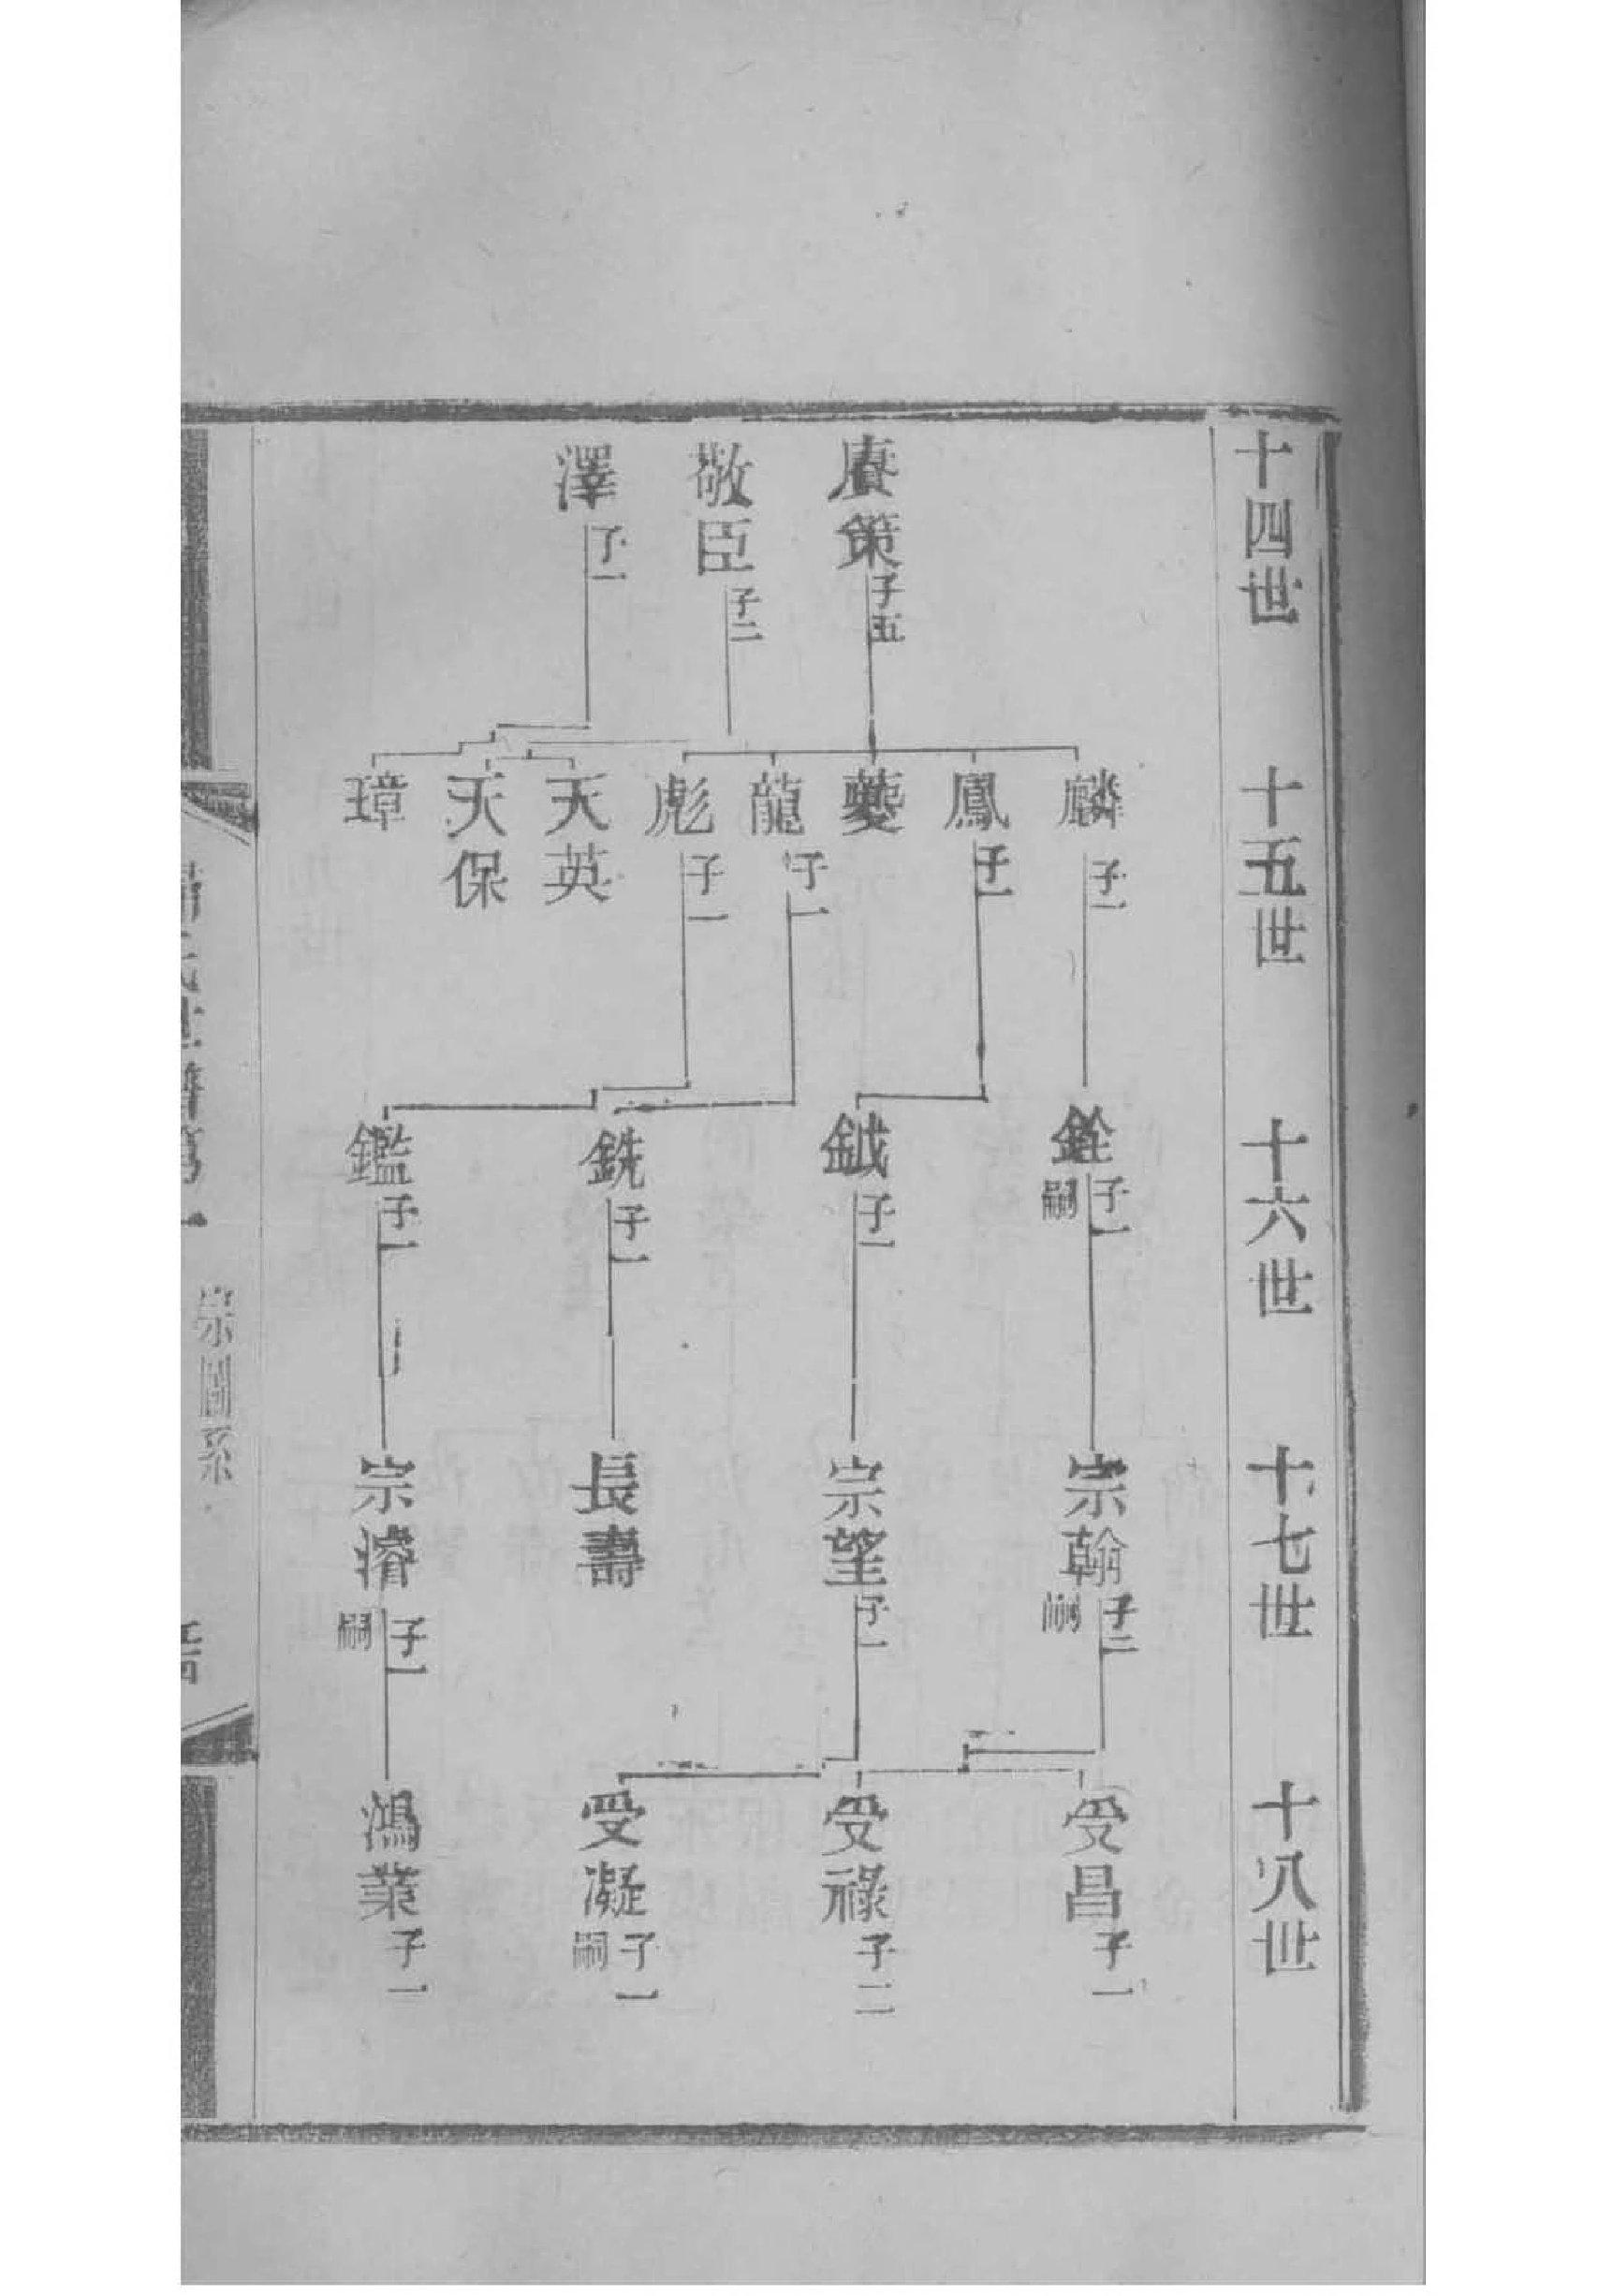 十四世
十五世
十六世
十七世
十八世
賡策 子五
敬臣 子二
澤 子一
麟 子一
鳳 子一
夔
龍 子一
彪 子一
天英
天保
璋
銓 子一 嗣
鉞 子一
銑 子一
鑑 子一
宗翰 子二 嗣
宗望 子一
長壽
宗濬 子一 嗣
受昌 子一
受祿 子二
受凝 子一 嗣
鴻業 子一
氏世譜第一
宗圖系